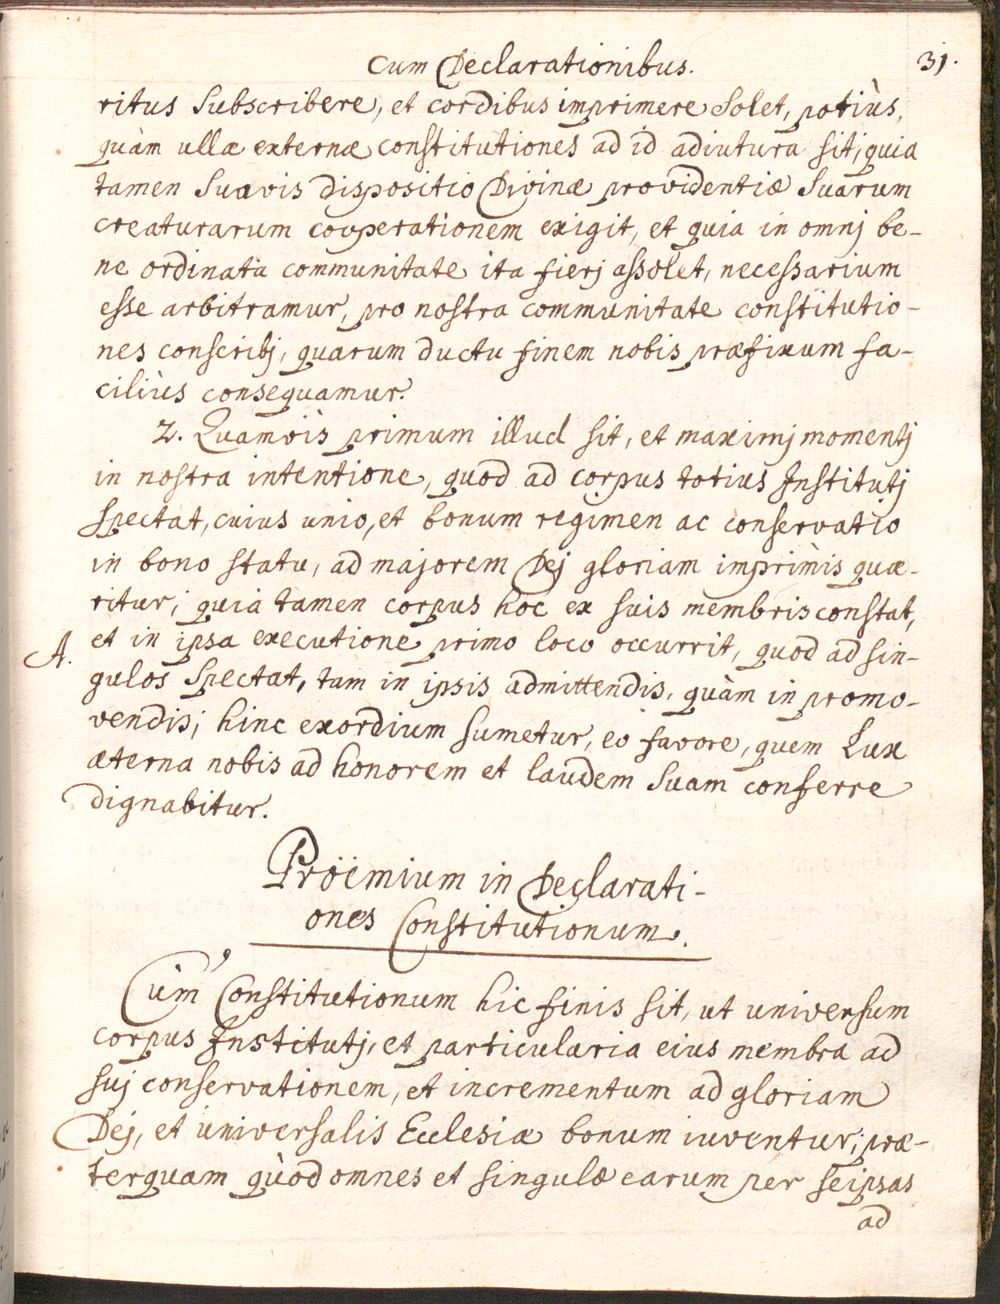 Cum Declarationibus. 31.
ritus subscribere, et cordibus imprimere solet, potiùs,
quàm ullæ externæ constitutiones ad id adiutura sit; quia
tamen suavis dispositio Divinæ providentiæ suarum
creaturarum cooperationem exigit, et quia in omnj be-
ne ordinata communitate ita fierj assolet, necessarium
esse arbitramur, pro nostra communitate constitutio-
nes conscribj, quarum ductu finem nobis præfixum fa-
ciliùs consequamur.
2. Quamvis primum illud sit, et maximj momentj
in nostra intentione, quod ad corpus totius Institutj
spectat, cuius unio, et bonum regimen ac conservatio
in bono statu, ad majorem Dej gloriam imprimis quæ-
ritur; quia tamen corpus hoc ex suis membris constat,
A. et in ipsa executione primo loco occurrit, quod ad sin-
gulos spectat, tam in ipsis admittendis, quàm in promo-
vendis; hinc exordium sumetur, eo favore, quem Lux
æterna nobis ad honorem et laudem suam conferre
dignabitur.
Proëmium in Declarati-
ones Constitutionum.
Cùm Constitutionum hic finis sit, ut universum
corpus Institutj, et particularia eius membra ad
suj conservationem, et incrementum ad gloriam
Dej, et universalis Ecclesiæ bonum iuventur; præ-
terquam quòd omnes et singulæ earum per seipsas
ad